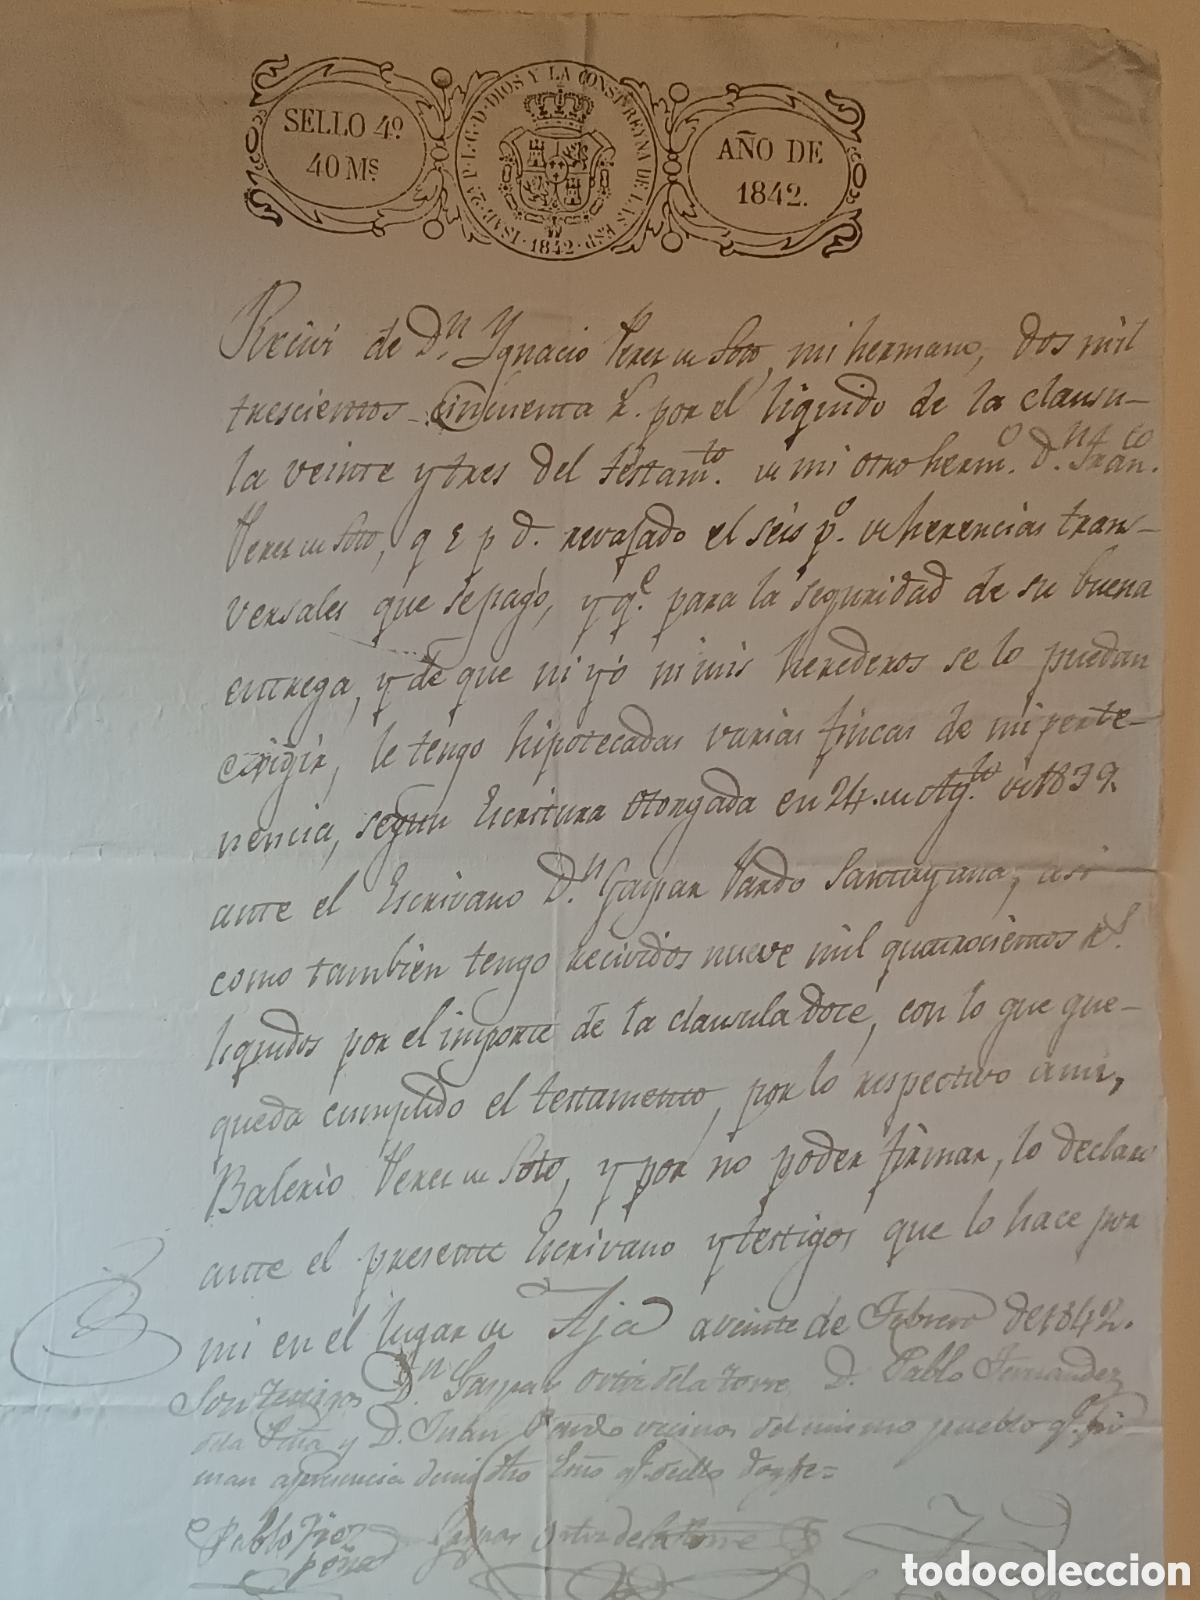 SELLO 4º
40 Mˢ
ISAB. 2ª P. L. G. D. DIOS Y LA CONST. REYNA DE LAS ESP. 1842
AÑO DE
1842.
Recivi de Dⁿ. Ygnacio Perez de Soto, mi hermano, dos mil
trescientos cincuenta r. por el liquido de la clausu-
la veinte y tres del testamᵗᵒ. de mi otro hermº. Dⁿ. Franᶜᵒ.
Perez de Soto, q e p d. revajado el seis pº. de herencias trans-
versales que se pagó, y qᵉ. para la seguridad de su buena
entrega, y de que ni yó ni mis herederos se lo puedan
exigir, le tengo hipotecadas varias fincas de mi perte-
nencia, segun Escritura otorgada en 24 de Agᵗᵒ de 1839.
ante el Escrivano Dⁿ. Gaspar Pardo Santayana, asi
como tambien tengo recividos nueve mil quatrocientos rˢ.
liquidos por el importe de la clausula doce, con lo que que-
queda cumplido el testamento, por lo respectivo a mi,
Balerio Perez de Soto, y por no poder firmar, lo declaro
ante el presente Escrivano y testigos que lo hace por
mi en el lugar de Aja a veinte de Febrero de 1842.
Son testigos Dⁿ Gaspar Ortiz de la Torre, D. Pablo Fernandez
de la Peña y D. Juan Pardo vecinos del mismo pueblo q. fir
man a presencia de mi otro Esno q. de ello doy fe=
Pablo Frnez
Peña
Gaspar Ortiz de la Torre
todocoleccion